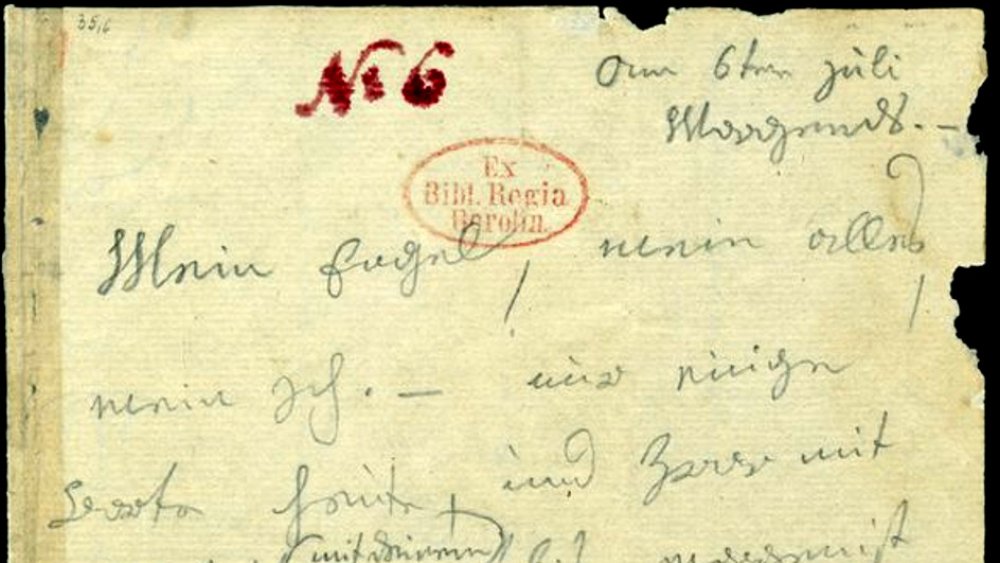 35,6
No 6
am 6ten juli
Morgends. –
Ex
Bibl. Regia
Berolin.
Mein Engel, mein alles,
mein Ich. – nur einige
Worte heute, und zwar mit
(mit deinem)